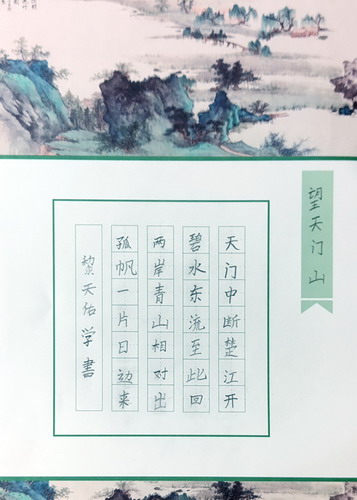 望天门山
天门中断楚江开
碧水东流至此回
两岸青山相对出
孤帆一片日边来
黎天佑学書